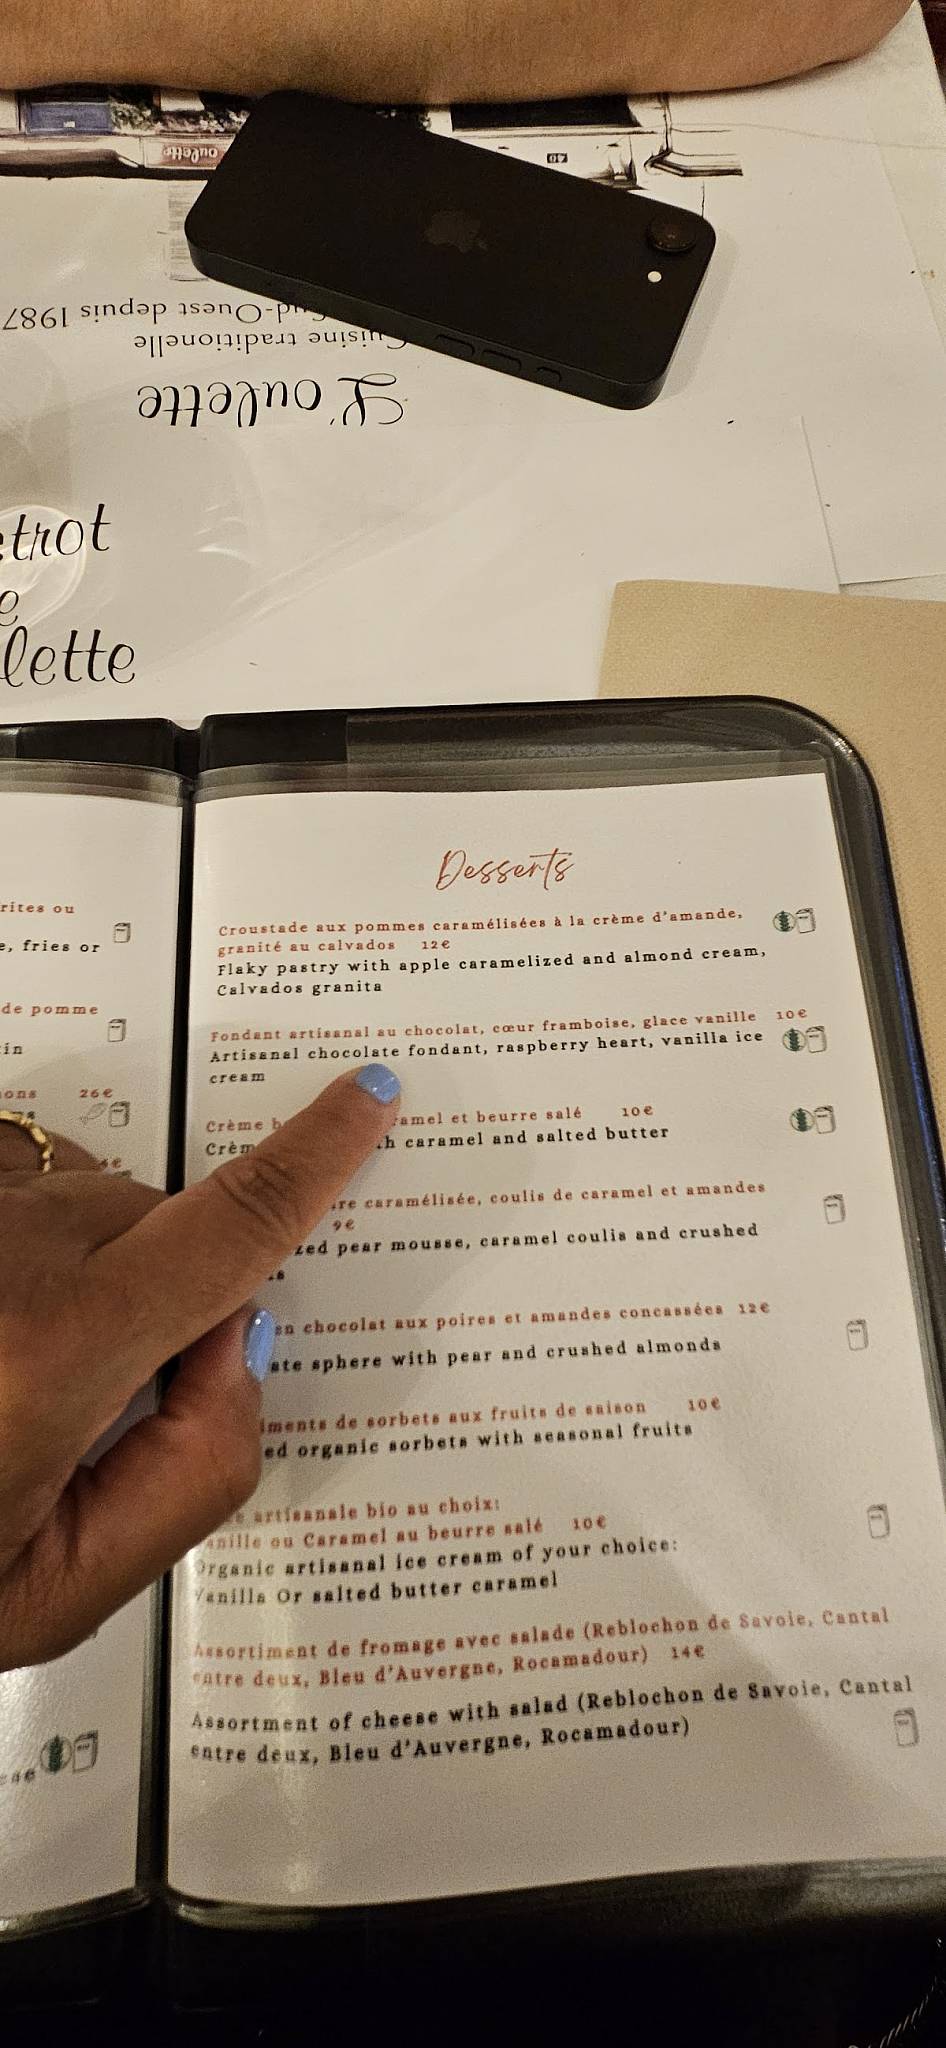 oulette
40
Sud-Ouest depuis 1987
Cuisine traditionelle
L'oulette
lette
rites ou
e, fries or
de pomme
26€
Desserts
Croustade aux pommes caramélisées à la crème d'amande,
granité au calvados 12€
Flaky pastry with apple caramelized and almond cream,
Calvados granita
Fondant artisanal au chocolat, cœur framboise, glace vanille 10€
Artisanal chocolate fondant, raspberry heart, vanilla ice
cream
Crème b ramel et beurre salé 10€
Crèm h caramel and salted butter
re caramélisée, coulis de caramel et amandes
9€
zed pear mousse, caramel coulis and crushed
s
en chocolat aux poires et amandes concassées 12€
ate sphere with pear and crushed almonds
iments de sorbets aux fruits de saison 10€
ed organic sorbets with seasonal fruits
e artisanale bio au choix:
anille ou Caramel au beurre salé 10€
Organic artisanal ice cream of your choice:
Vanilla Or salted butter caramel
Assortiment de fromage avec salade (Reblochon de Savoie, Cantal
entre deux, Bleu d'Auvergne, Rocamadour) 14€
Assortment of cheese with salad (Reblochon de Savoie, Cantal
entre deux, Bleu d'Auvergne, Rocamadour)